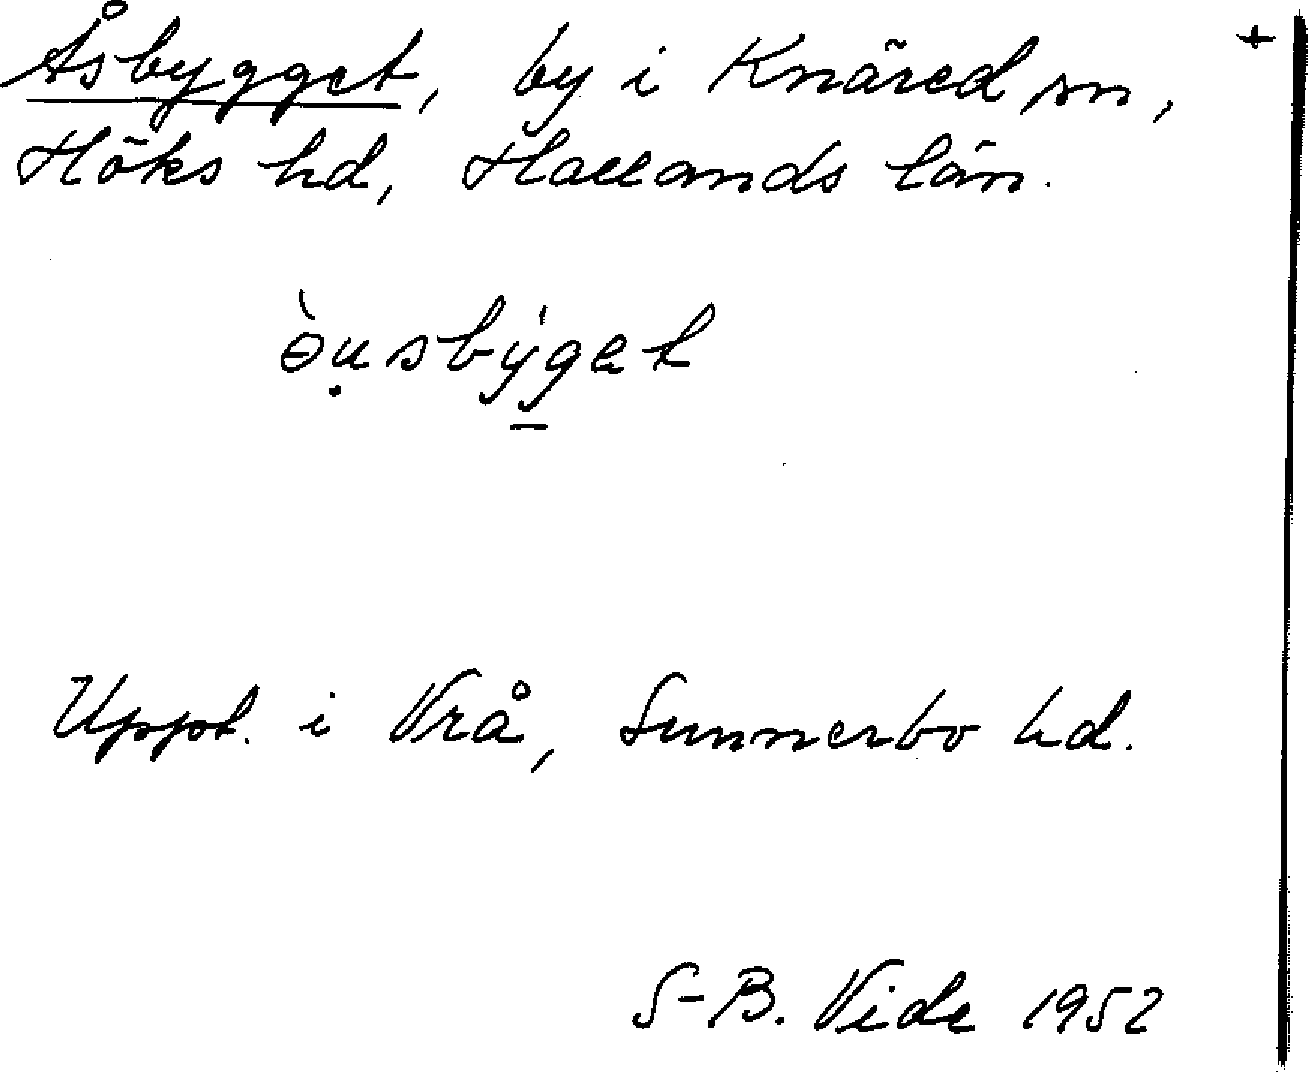 Åsbygget, by i Knäred sn, +
Höks hd, Hallands län.
ɵ̀ụsbýg̱et
Uppt. i Vrå, Sunnerbo hd.
S-B. Vide 1952